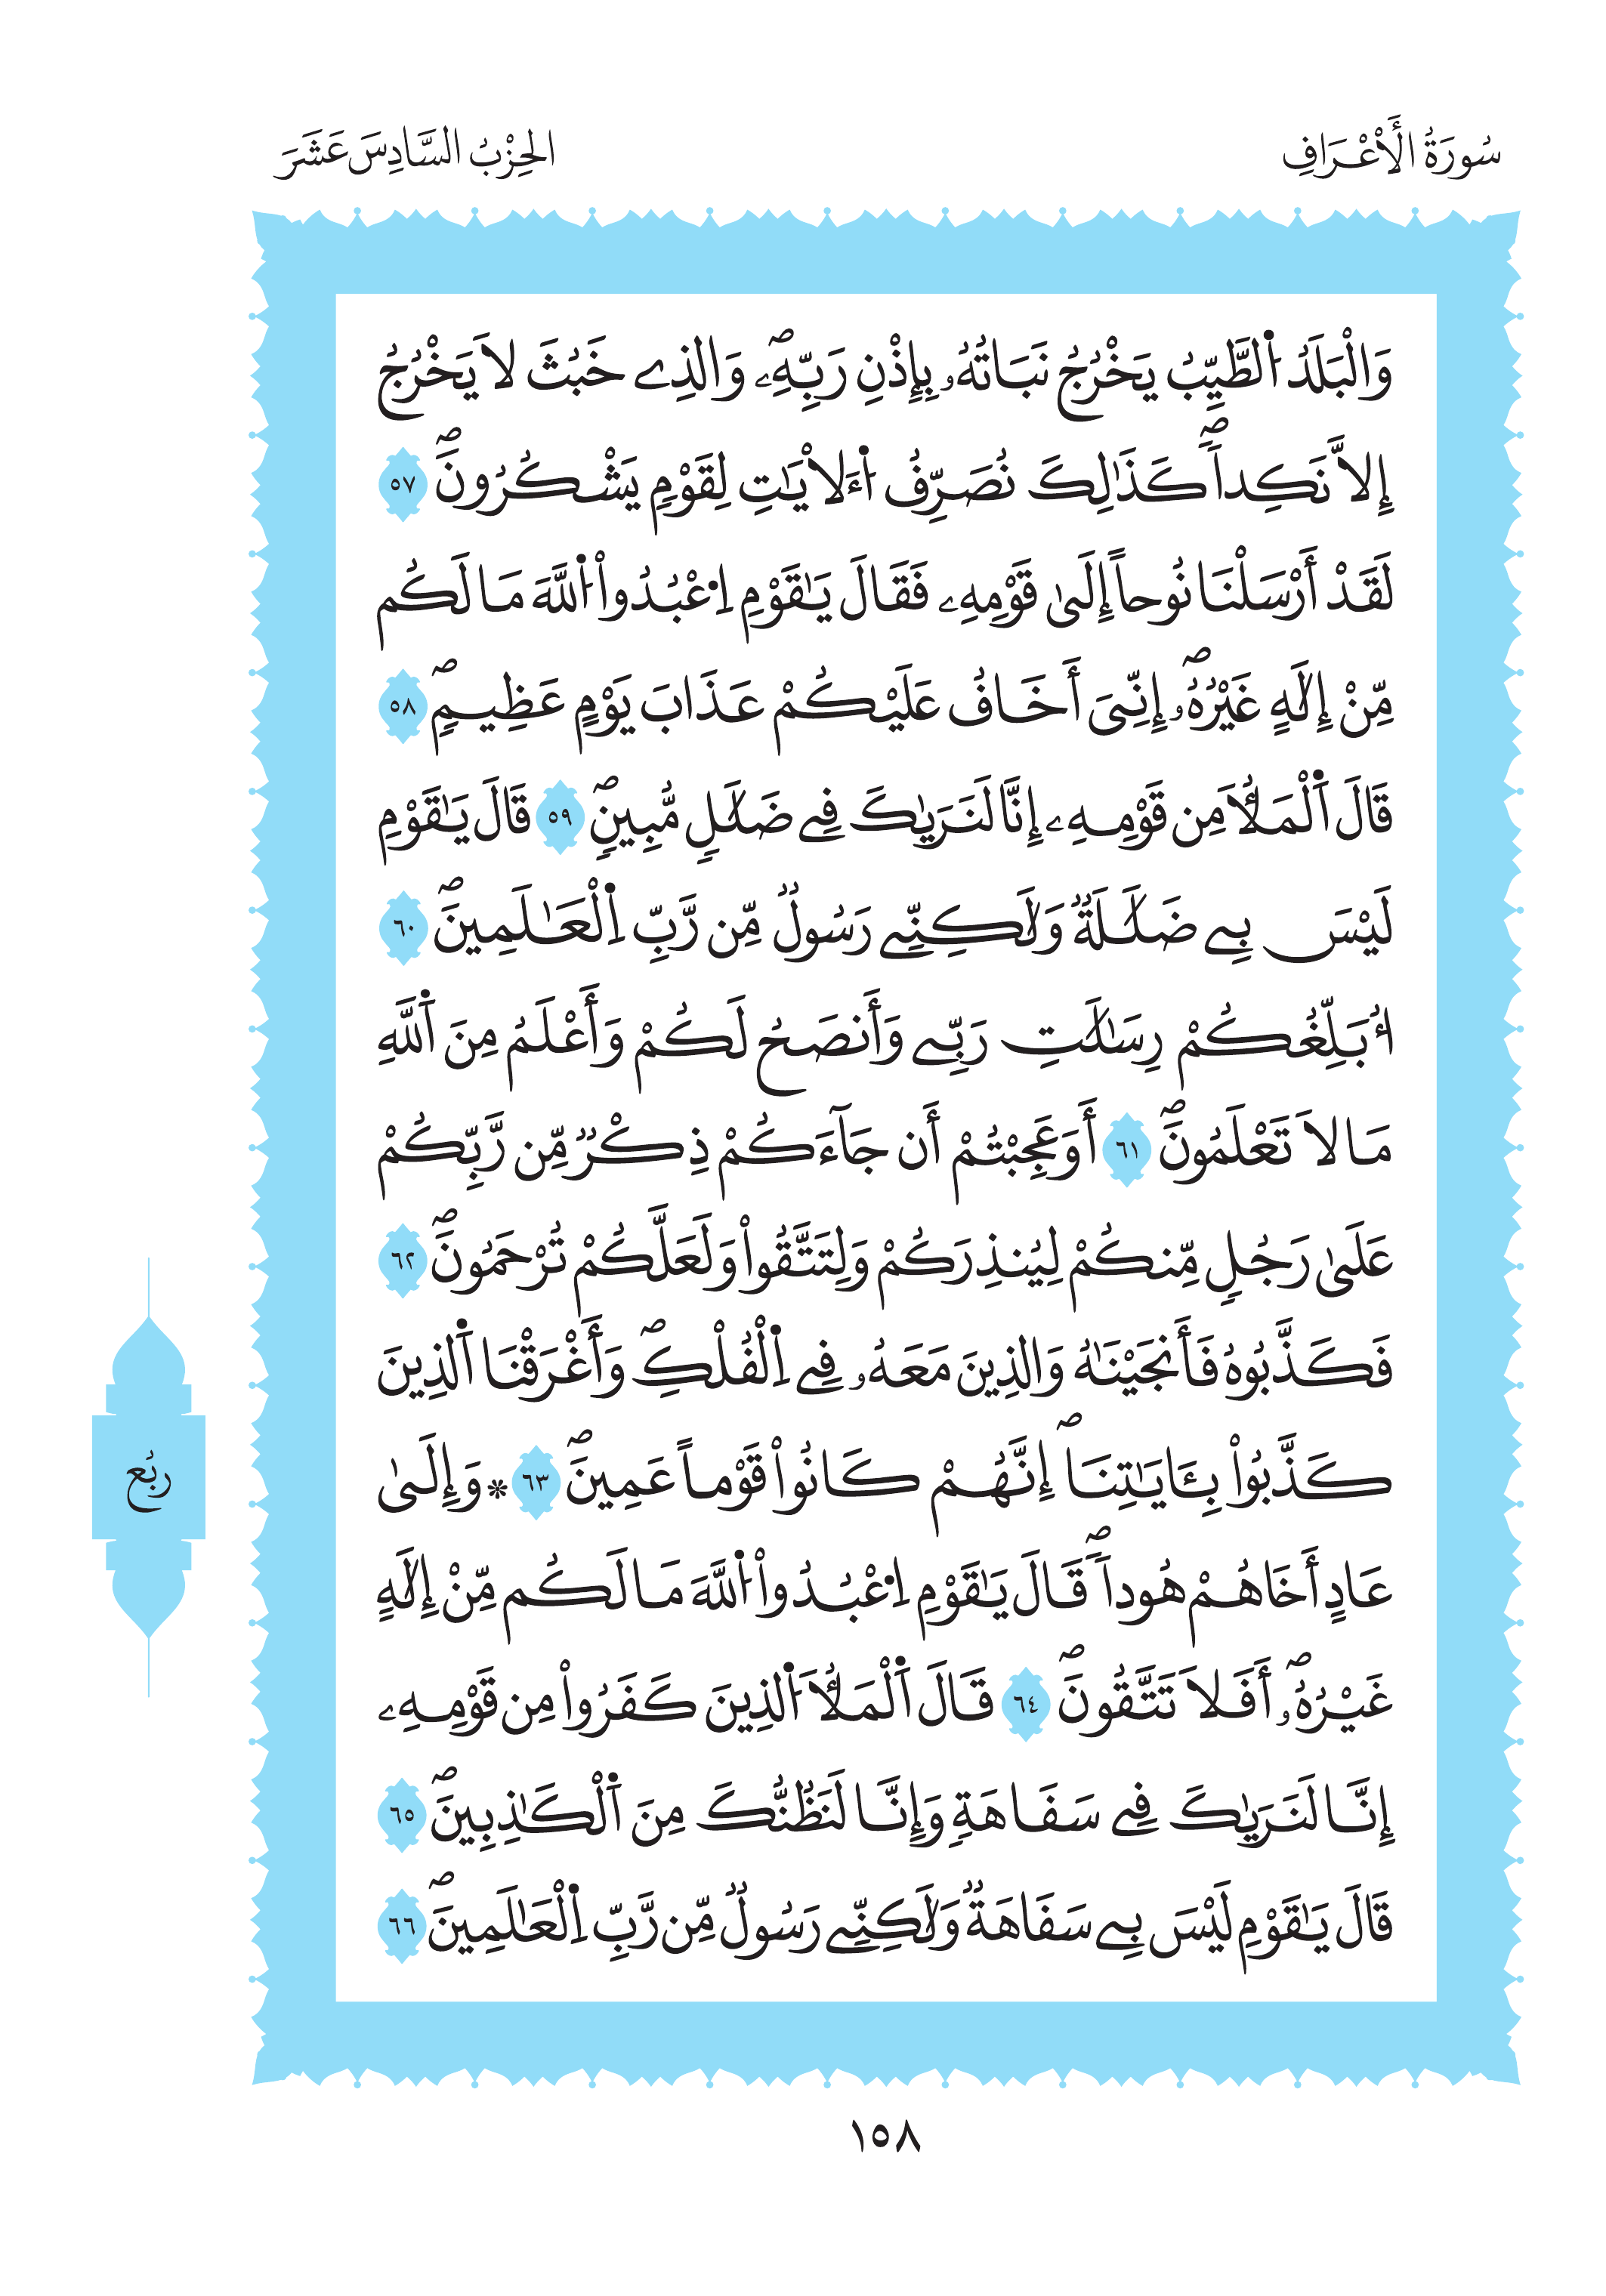 سُورَةُ الْأَعْرَافِ
الحِزْبُ السَّادِسَ عَشَرَ
وَالْبَلَدُ اُ۬لطَّيِّبُ يَخْرُجُ نَبَاتُهُۥ بِإِذْنِ رَبِّهِۦۖ وَالذِے خَبُثَ لَا يَخْرُجُ
إِلَّا نَكِداٗۖ كَذَٰلِكَ نُصَرِّفُ اُ۬لَايَٰتِ لِقَوْمٖ يَشْكُرُونَۖ ٥٧
لَقَدْ أَرْسَلْنَا نُوحاً إِلَىٰ قَوْمِهِۦ فَقَالَ يَٰقَوْمِ اِ۟عْبُدُواْ اُ۬للَّهَ مَا لَكُم
مِّنْ إِلَٰهٍ غَيْرُهُۥۖ إِنِّيَ أَخَافُ عَلَيْكُمْ عَذَابَ يَوْمٍ عَظِيمٖۖ ٥٨
قَالَ اَ۬لْمَلَأُ مِن قَوْمِهِۦ إِنَّا لَنَرَيٰكَ فِے ضَلَٰلٖ مُّبِينٖۖ ٥٩ قَالَ يَٰقَوْمِ
لَيْسَ بِے ضَلَٰلَةٞ وَلَٰكِنِّے رَسُولٞ مِّن رَّبِّ اِ۬لْعَٰلَمِينَۖ ٦٠
أُبَلِّغُكُمْ رِسَٰلَٰتِ رَبِّے وَأَنصَحُ لَكُمْ وَأَعْلَمُ مِنَ اَ۬للَّهِ
مَا لَا تَعْلَمُونَۖ ٦١ أَوَعَجِبْتُمْ أَن جَآءَكُمْ ذِكْرٞ مِّن رَّبِّكُمْ
عَلَىٰ رَجُلٖ مِّنكُمْ لِيُنذِرَكُمْ وَلِتَتَّقُواْ وَلَعَلَّكُمْ تُرْحَمُونَۖ ٦٢
فَكَذَّبُوهُ فَأَنجَيْنَٰهُ وَالذِينَ مَعَهُۥ فِے اِ۬لْفُلْكِۖ وَأَغْرَقْنَا اَ۬لذِينَ
كَذَّبُواْ بِـَٔايَٰتِنَاۖ إِنَّهُمْ كَانُواْ قَوْماً عَمِينَۖ ٦٣ * وَإِلَىٰ
عَادٍ أَخَاهُمْ هُوداٗۖ قَالَ يَٰقَوْمِ اِ۟عْبُدُواْ اُ۬للَّهَ مَا لَكُم مِّنْ إِلَٰهٍ
غَيْرُهُۥۖ أَفَلَا تَتَّقُونَۖ ٦٤ قَالَ اَ۬لْمَلَأُ اُ۬لذِينَ كَفَرُواْ مِن قَوْمِهِۦ
إِنَّا لَنَرَيٰكَ فِے سَفَاهَةٖ وَإِنَّا لَنَظُنُّكَ مِنَ اَ۬لْكَٰذِبِينَۖ ٦٥
قَالَ يَٰقَوْمِ لَيْسَ بِے سَفَاهَةٞ وَلَٰكِنِّے رَسُولٞ مِّن رَّبِّ اِ۬لْعَٰلَمِينَۖ ٦٦
ربُع
١٥٨